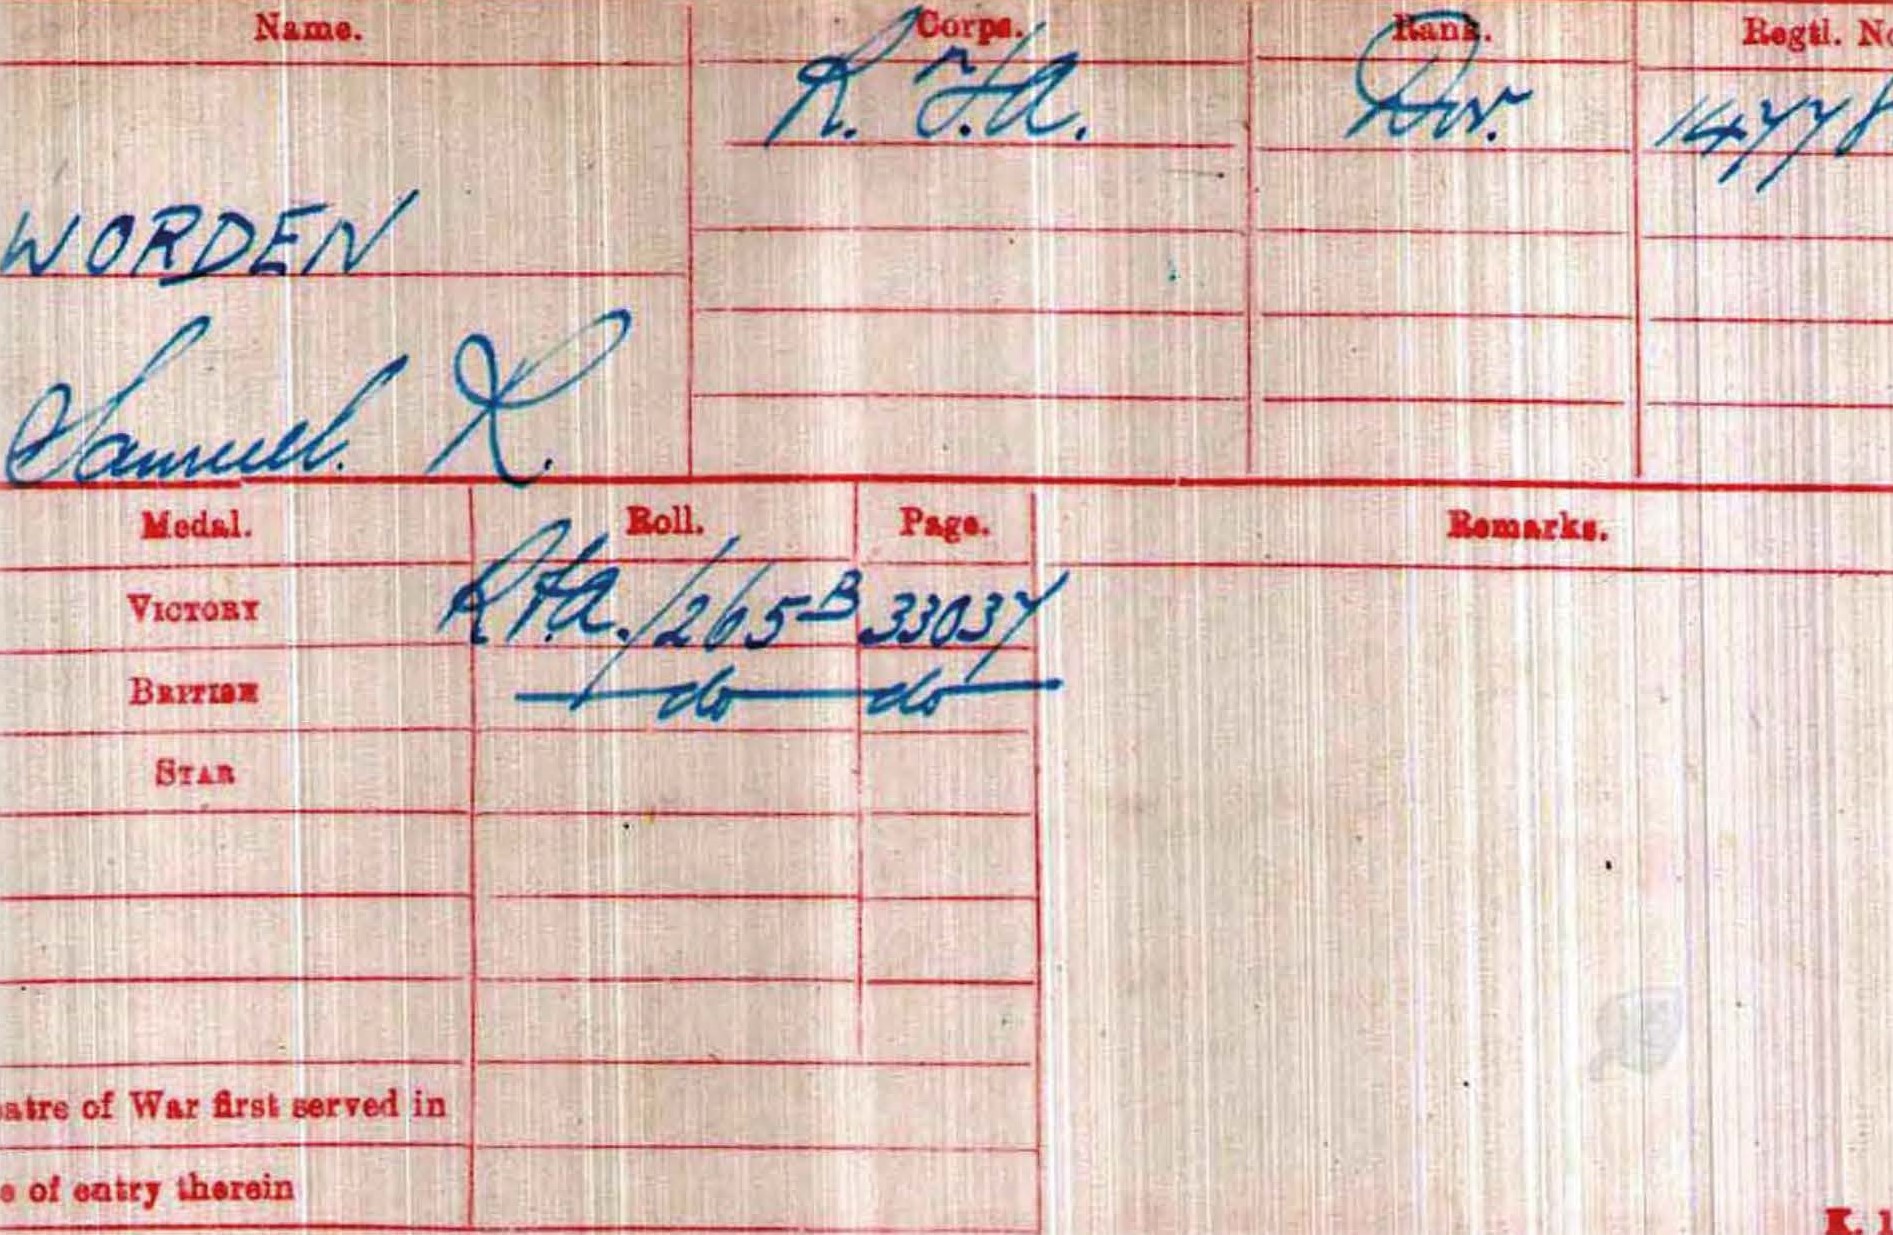 Name. Corps. Rank. Regtl. No
R.F.A. Dvr. 14778
WORDEN
Samuel. R.
Medal. Roll. Page. Remarks.
VICTORY R.F.A./265B 33037
BRITISH do do
STAR
eatre of War first served in
e of entry therein
K. 1